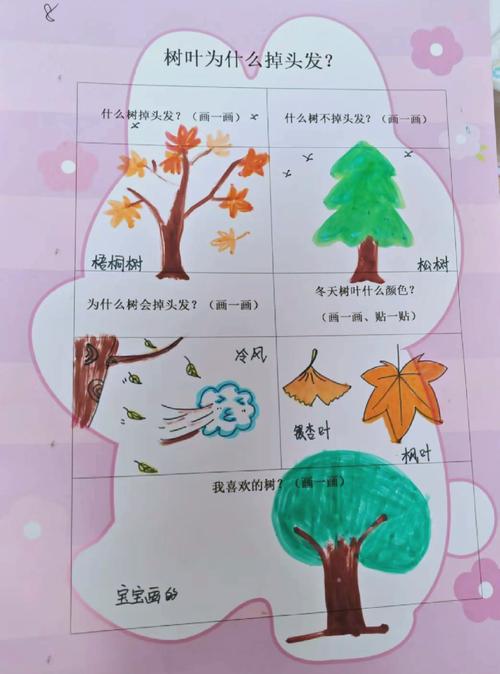 8
树叶为什么掉头发？
什么树掉头发？（画一画）
什么树不掉头发？（画一画）
梧桐树
松树
为什么树会掉头发？（画一画）
冬天树叶什么颜色？
（画一画、贴一贴）
冷风
银杏叶
枫叶
我喜欢的树？（画一画）
宝宝画的